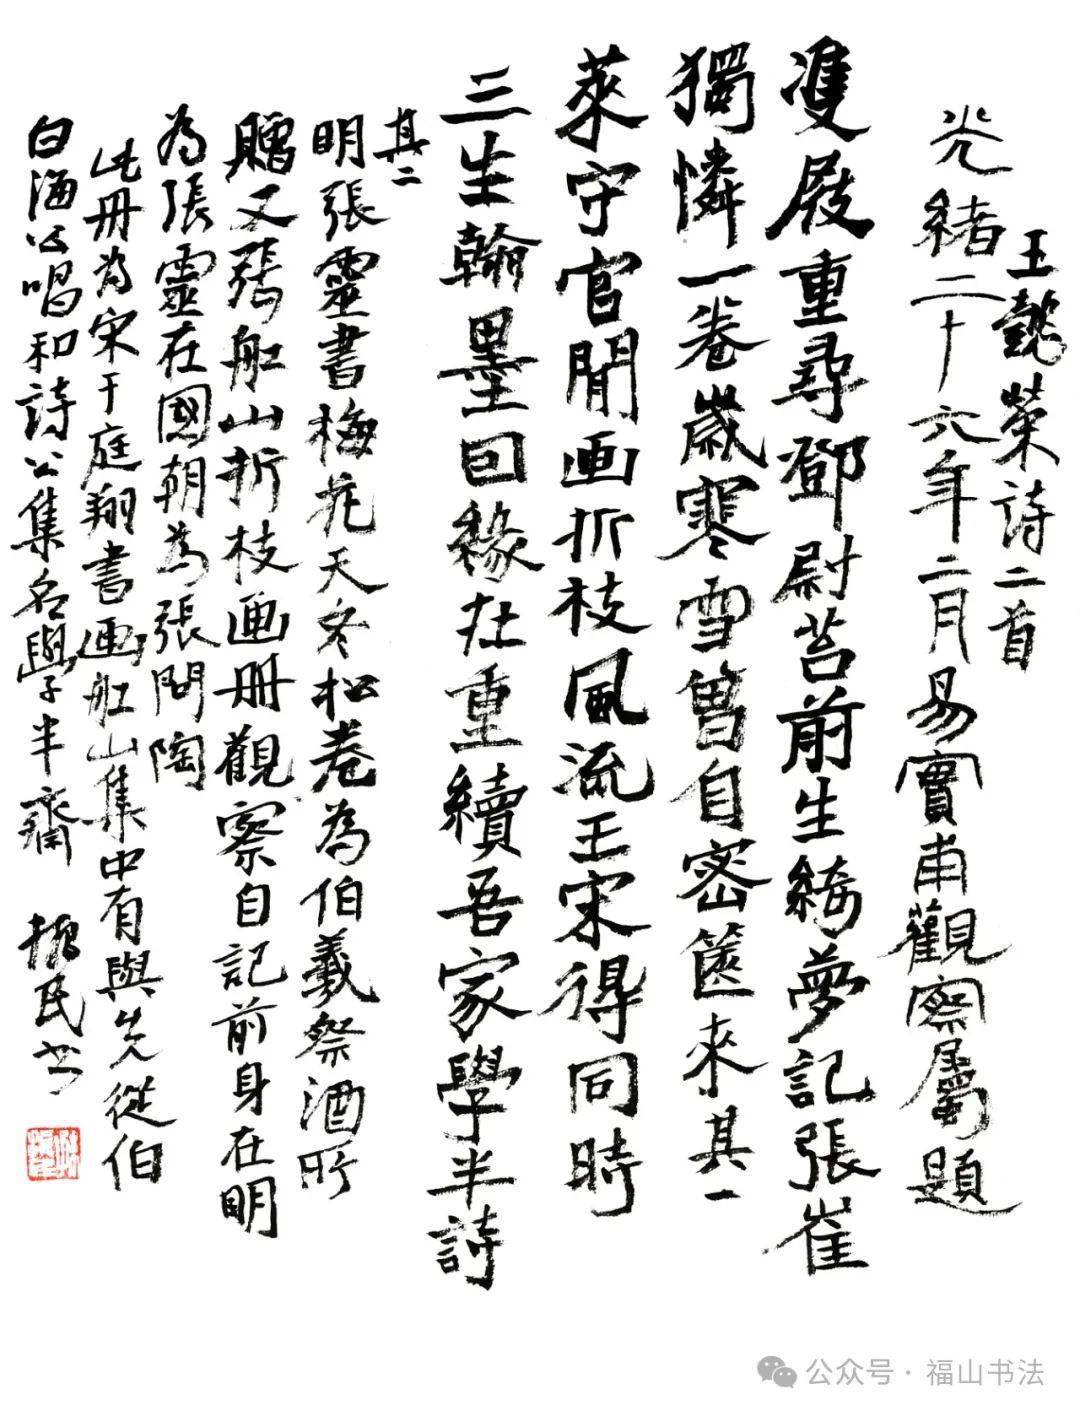 王懿榮詩二首
光緒二十六年二月易實甫觀察屬題
雙屐重尋鄧尉苔前生綺夢記張崔
獨憐一卷歲寒雪曾自密箧來其一
萊守官閒画折枝風流王宋得同時
三生翰墨因緣在重續吾家學半詩
其二
明張靈書梅花天冬松卷為伯羲祭酒所
贈又張船山折枝画册觀察自記前身在明
為張靈在國朝為張問陶
此册為宋于庭翔書画船山集中有與先從伯
白海公唱和詩公集名學半齋 振民书
公众号·福山书法